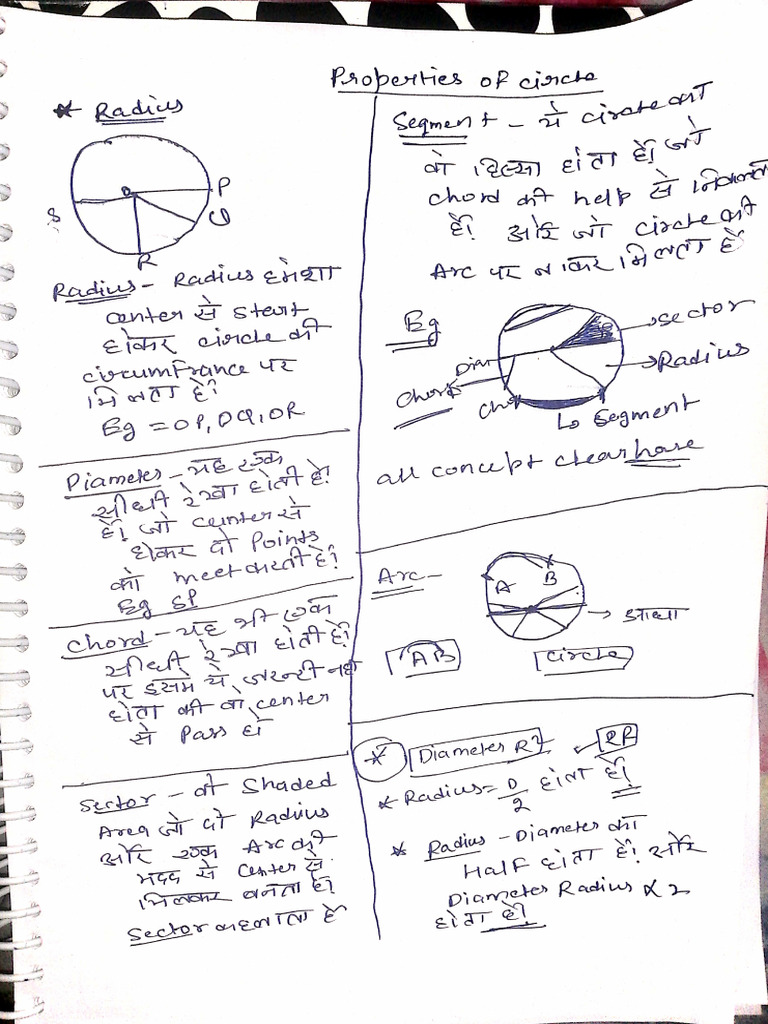 Properties of circle
* Radius
O
P
Q
S
R
Radius - Radius हमेशा
center से start
होकर circle की
circumfrance पर
मिलता है।
Eg = OP, OQ, OR
Diameter - यह एक
सीधी रेखा होती है।
है। जो center से
होकर दो Points
को meet करती है।
Eg SP
Chord - यह भी एक
सीधी रेखा होती है।
पर इसमे ये जरूरी नही
होता की वो center
से Pass हो
Sector - वो Shaded
Area जो दो Radius
और एक Arc की
मदद से Center से
मिलकर बनता है।
Sector कहलाता है
Segment - ये circle का
वो हिस्सा होता है। जो
chord की help से निकलता
है। और जो circle की
Arc पर जाकर मिलता है
Eg
sector
Radius
Dia
Chord
Cho
Segment
all concept clear here
Arc -
A
B
आधा
AB
circle
* Diameter R? 2R
* Radius = D/2 होता है।
* Radius - Diameter का
Half होता है। और
Diameter Radius x 2
होता है।